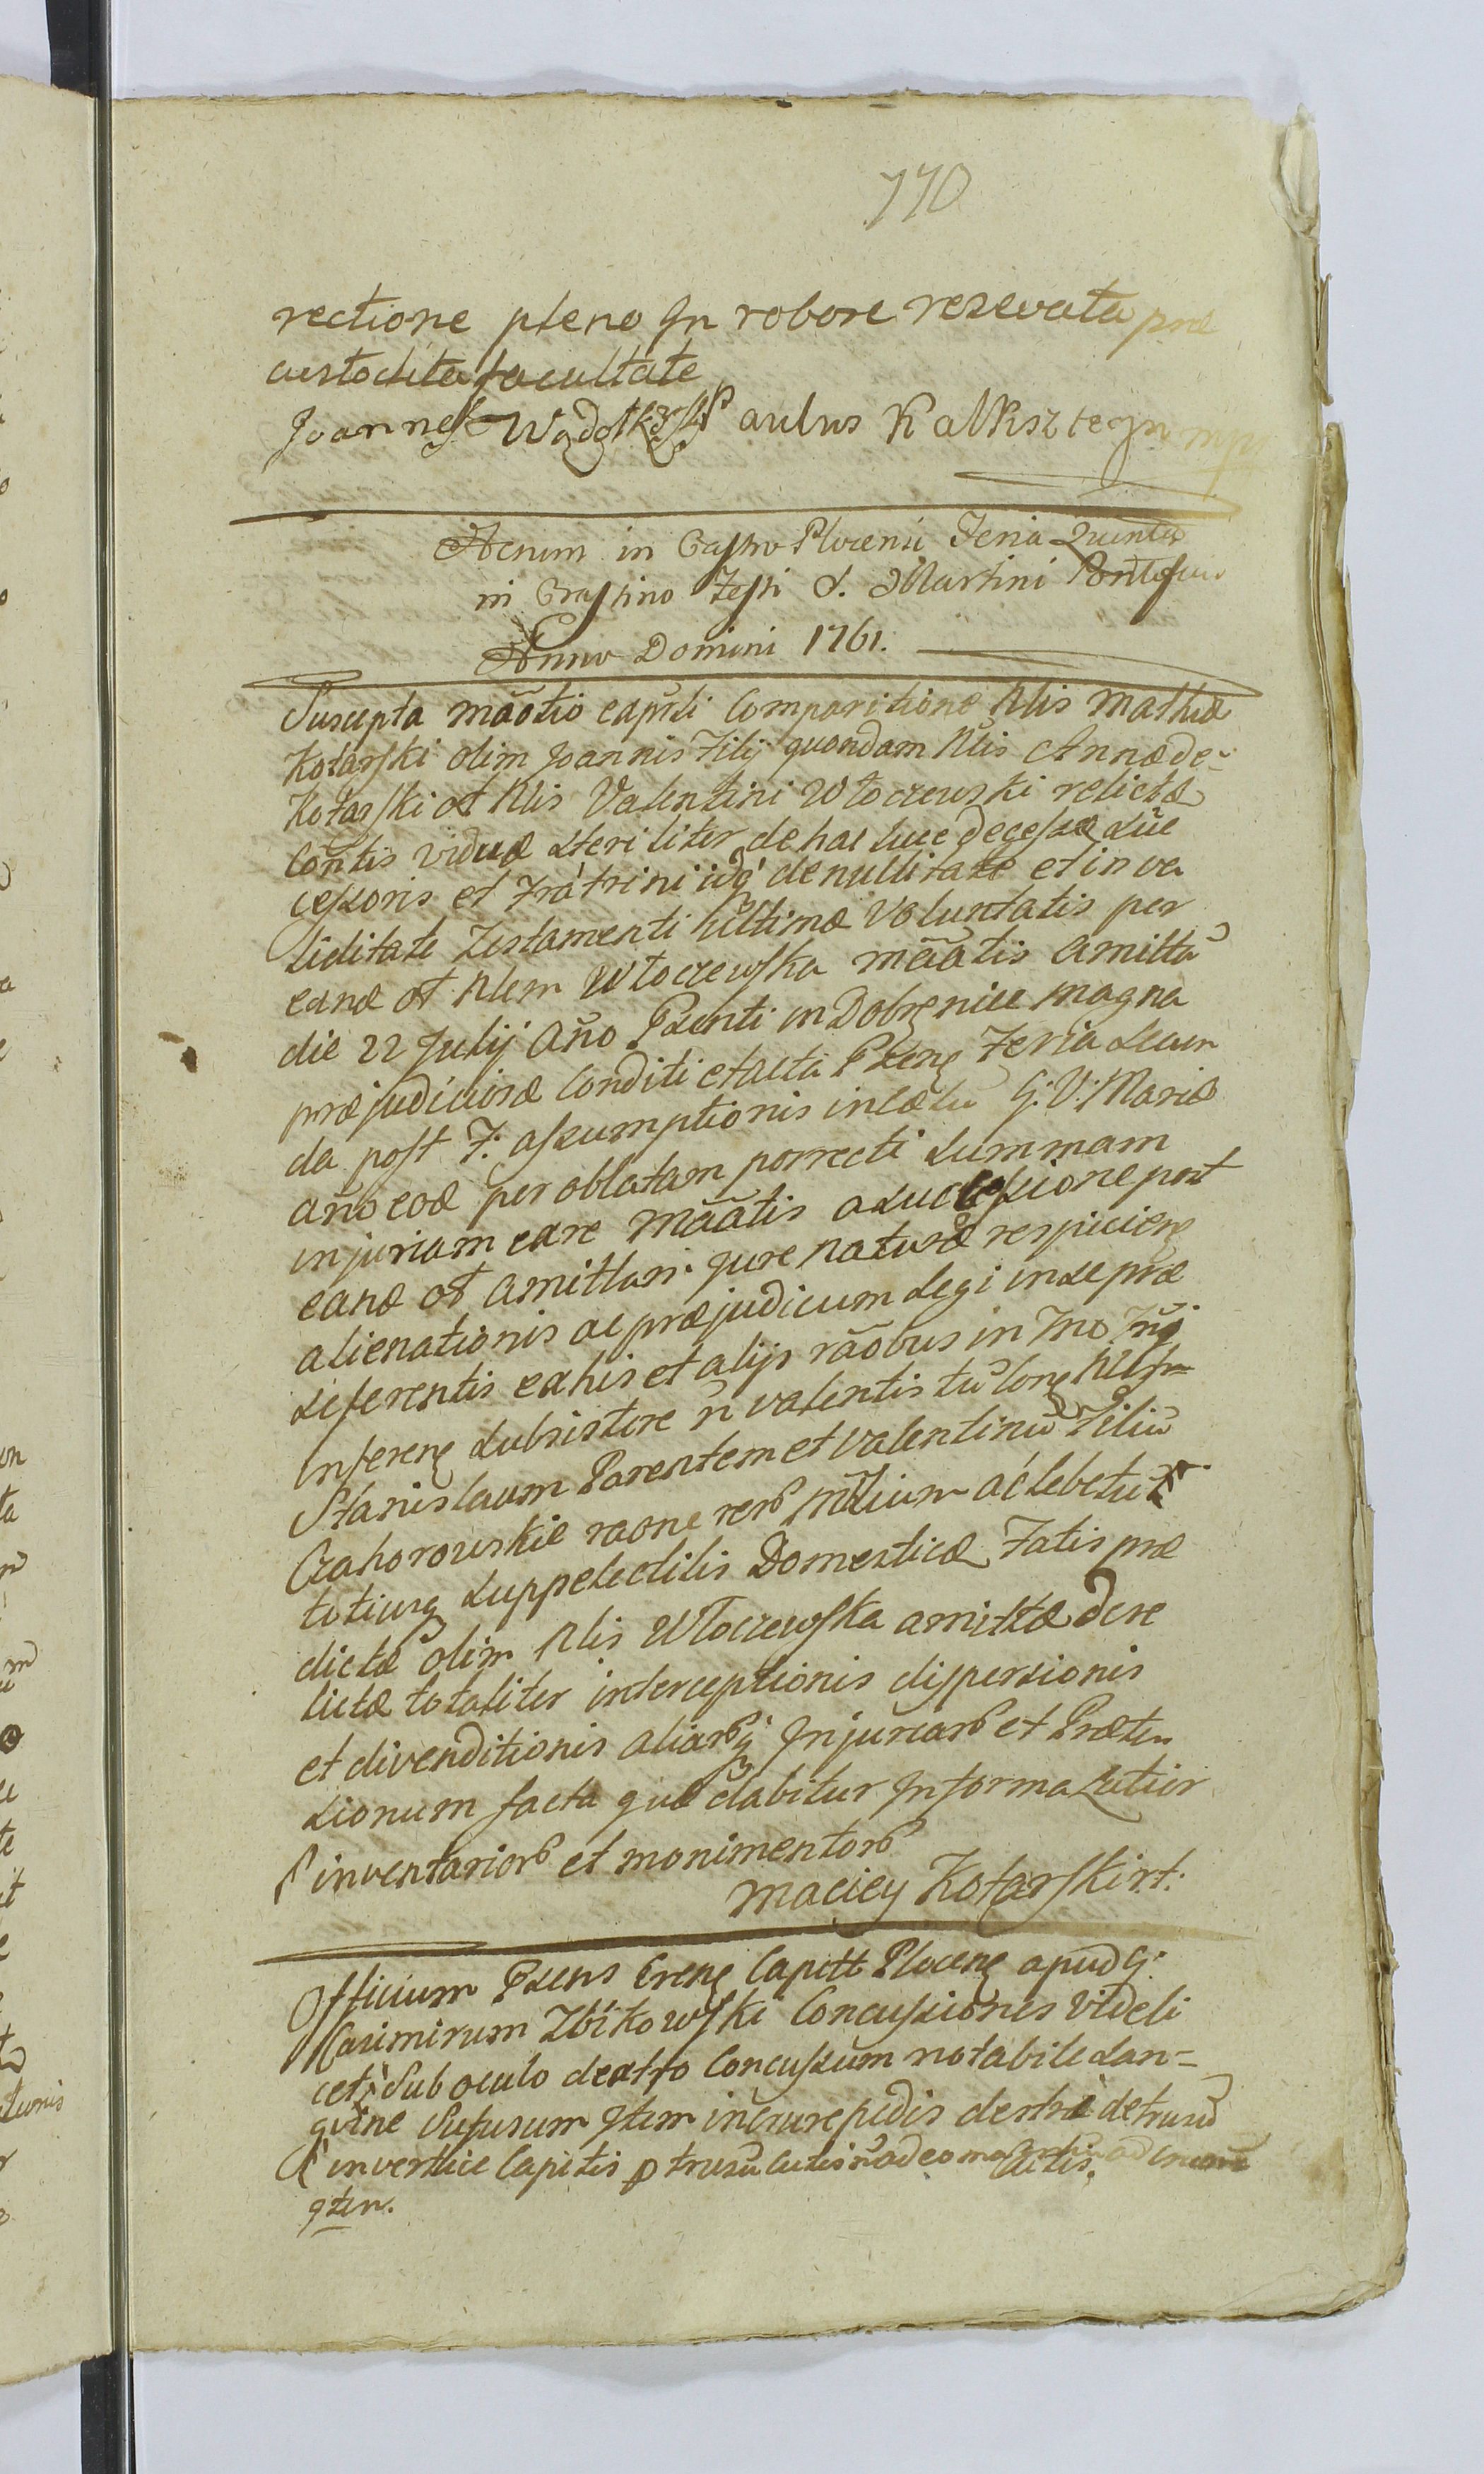 770
rectione pleno In robore reservata præ
custodita facultate
Joannes Paulus Kalkszteyn mp
Actum in Castro Plocensi Feria Quinta
in Crastino Festi S. Martini Pontificis
Anno Domini 1761.
Suscepta mãotio capĩti Comparitione Nlis Mathiæ
Kotarski olim Joannis Filij quondam Nlis Annæ de
Kotarski ot Nlis Valentini Wloczewski relictæ
Contis viduæ steriliter de hac luce decessæ Suc
cessoris et Fratrini idq de nullitate et inva
liditate Testamenti ultimæ Voluntatis per
eand ot Nlem Wloczewska mãatis Amittã
die 22 Julij Año Pstenti in Dobrzenice magna
præjudiciose Conditi et acta Plcens Feria Secun
da post F: assumptionis in Cælu G: V: Mariæ
año eod per oblatam porrecti summam
injuriam ex re mãatis a successione post
eand ot Amittam jure naturæ respiciens
alienationis ac præjudicium legi in se præ
seferentis ex his et alijs rãobus in Fno
Inferens subsistere ñ valentis tũ Cons Nlm
Stanislaum Parentem et Valentinũ Filiũ
Czahorowskie raone rerũ mlium ac lebetũ
totiusq suppelectilis Domesticæ Fatis præ
dictæ olim Nlis Wloczewska amittæ de re
lictæ totaliter interceptionis dispersionis
et divenditionis aliarũq Injuriarũ et Præten
sionum facta quæ dabitur In forma Latior
S inventariorũ et monimentorũ
Maciey Kotarski r.t.
Officium Psens Crens Capitt Plocens apud G:
Casimirum Zbikowski Concussiones videli
cet Sub oculo dextro Concussum notabile san-
guine Sufusum Item in Crure pedis dextri detrusũ
A in vertice Capitis p trusũ cutis ad eo
qten.